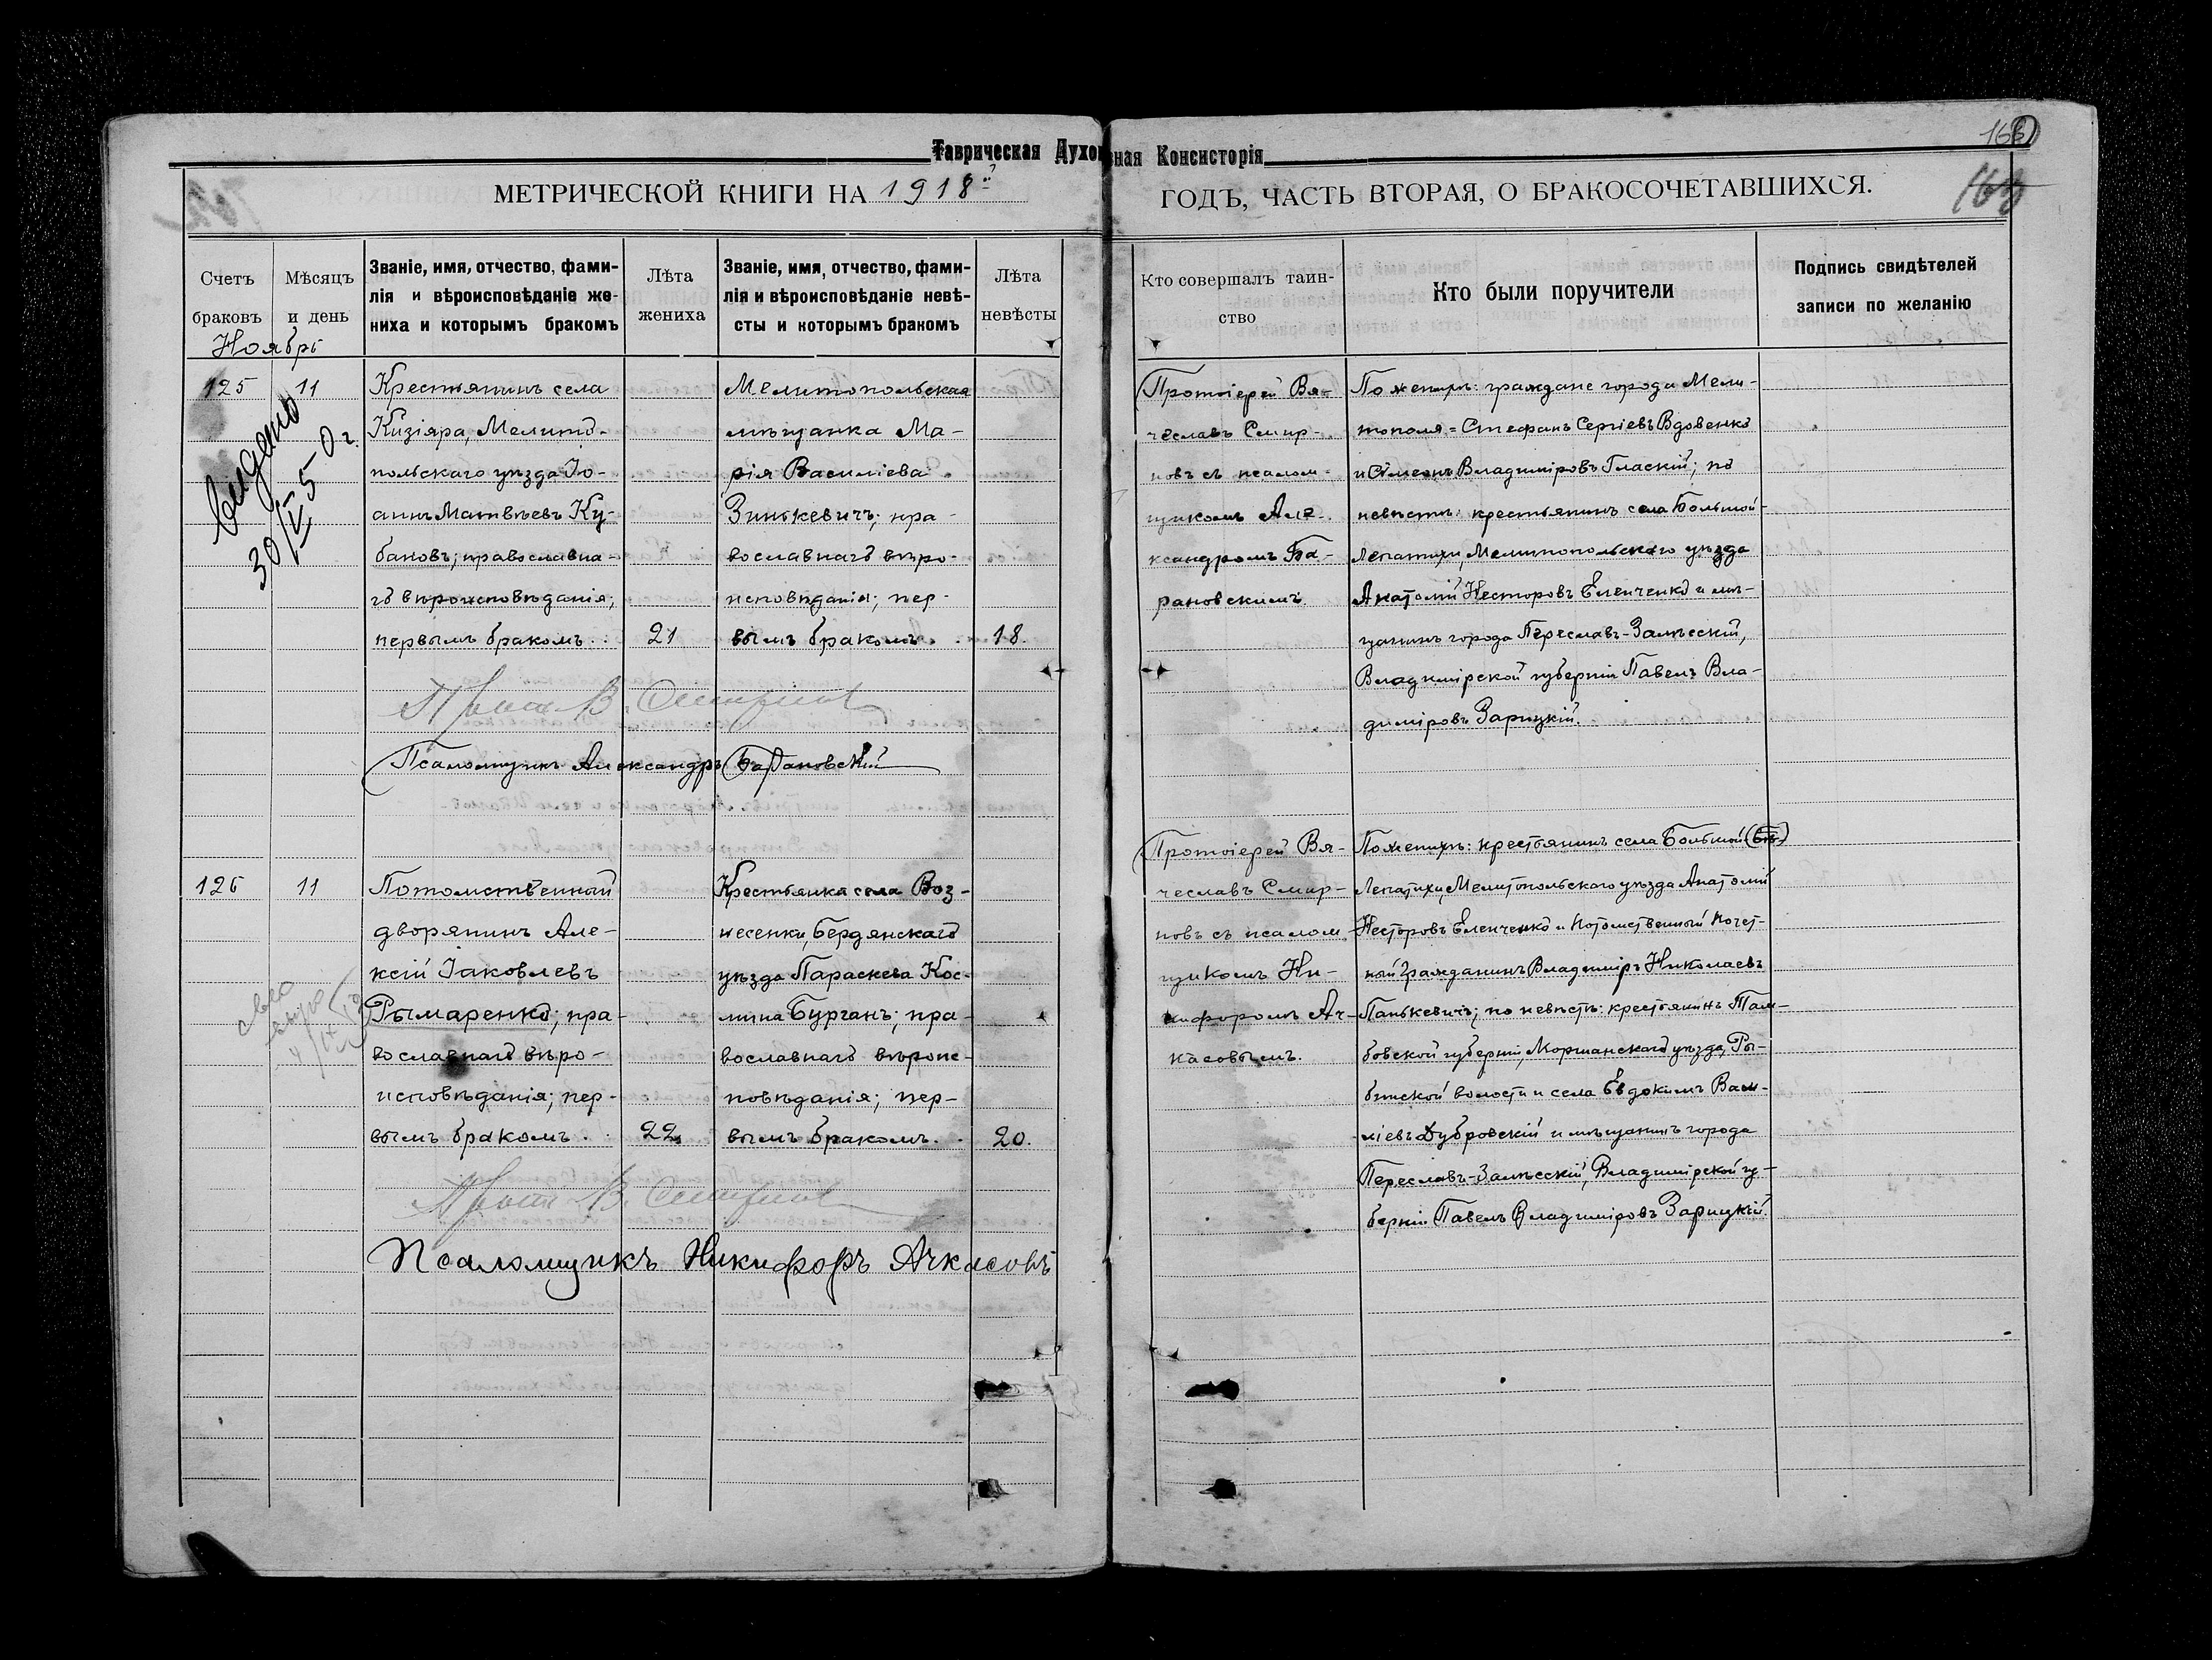 Таврическая Духовная Консисторія
166
МЕТРИЧЕСКОЙ КНИГИ НА 1918й
ГОДЪ, ЧАСТЬ ВТОРАЯ, О БРАКОСОЧЕТАВШИХСЯ.
163
Счетъ
браковъ
Мѣсяцъ
и день
Званіе, имя, отчество, фами-
лія и вѣроисповѣданіе же-
ниха и которымъ бракомъ
Лѣта
жениха
Званіе, имя, отчество, фами-
лія и вѣроисповѣданіе невѣ-
сты и которымъ бракомъ
Лѣта
невѣсты
Кто совершалъ таин-
ство
Кто были поручители
Подпись свидѣтелей
записи по желанію
Ноябрь
125
11
30/IX 50 г.
Крестьянинъ села
Кизіяра, Мелито-
польскаго уѣзда Іо-
аннъ Матвѣевъ Ку-
бановъ; православна-
го вѣроисповѣданія;
первымъ бракомъ.
21
Мелитопольская
мѣщанка Ма-
рія Василіева
Зинькевичъ; пра-
вославнаго вѣро-
исповѣданія; пер-
вымъ бракомъ.
18.
Протоіерей Вя-
чеславъ Смир-
новъ съ псалом-
щикомъ Але-
ксандромъ Ба-
рановскимъ.
По женихѣ: граждане города Мели-
тополя = Стефанъ Сергіевъ Вдовенко
и Симеонъ Владиміровъ Гласкій; по
невѣстѣ: крестьянинъ села Большой-
Лепатихи, Мелитопольскаго уѣзда
Анатолій Несторовъ Еленченко и мѣ-
щанинъ города Переславъ-Залѣсскій,
Владимірской губерніи Павелъ Вла-
диміровъ Зарицкій.
Прот. В. Смирновъ
Псаломщикъ Александръ Барановскій
126
11
Потомственный
дворянинъ Але-
ксій Іаковлевъ
Рымаренко; пра-
вославнаго вѣро-
исповѣданія; пер-
вымъ бракомъ.
22
Крестьянка села Воз-
несенки, Бердянскаго
уѣзда Параскева Кос-
мина Бурганъ; пра-
вославнаго вѣроис-
повѣданія; пер-
вымъ бракомъ.
20.
Протоіерей Вя-
чеславъ Смир-
новъ съ псалом-
щикомъ Ни-
кифоромъ Ач-
касовымъ.
По женихѣ: крестьянинъ села Большой
Лепатихи, Мелитопольскаго уѣзда Анатолій
Несторовъ Еленченко и Потомственный Почет-
ный Гражданинъ Владиміръ Николаевъ
Панькевичъ; по невѣстѣ: крестьянинъ Там-
бовской губерніи, Моршанскаго уѣзда, Ры-
бинской волости и села Евдокимъ Васи-
ліевъ Дубровскій и мѣщанинъ города
Переславъ-Залѣсскій, Владимірской гу-
берніи Павелъ Владиміровъ Зарицкій.
Прот. В. Смирновъ
Псаломщикъ Никифоръ Ачкасовъ